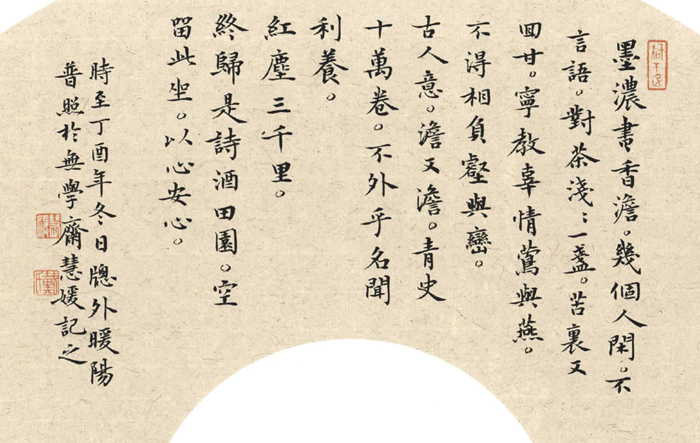 墨濃書香澹。幾個人閑。不
言語。對茶淺淺一盞。苦裏又
回甘。寧教辜情鶯與燕。
不得相負壑與巒。
古人意。澹又澹。青史
十萬卷。不外乎名聞
利養。
紅塵三千里。
終歸是詩酒田園。空
留此坐。以心安心。
時至丁酉年冬日牕外暖陽
普照於無學齋慧媛記之